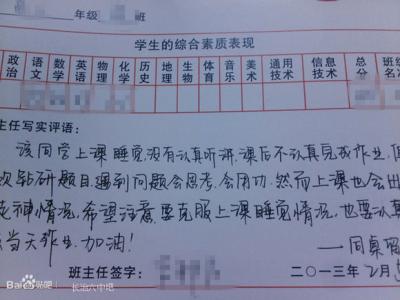 年级 班
学生的综合素质表现
政治 语文 数学 英语 物理 化学 历史 地理 生物 体育 音乐 美术 通用技术 信息技术 总分 班级名
主任写实评语：
该同学上课睡觉，没有认真听讲，课后不认真完成作业，但
欢钻研题目，遇到问题会思考，会用功，然而上课也会出
走神情况，希望注意要克服上课睡觉情况，也要认真
当天作业，加油！
——同桌
班主任签字： 二○一三年2月
Bai du 贴吧 长治六中吧